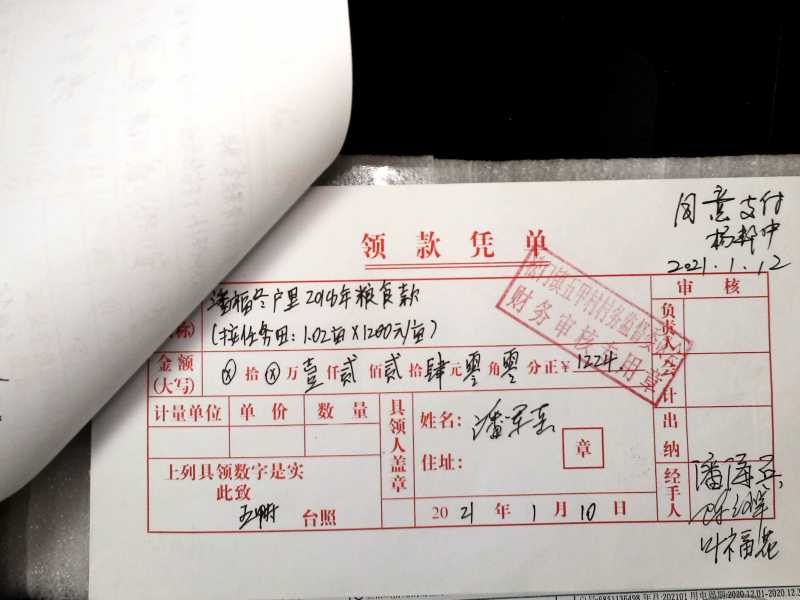 同意支付
2021.1.12
领款凭单
潘福冬户里2016年粮食款
(按任务田:1.02亩×1200元/亩)
金额
(大写)
⊗拾⊗万壹仟贰佰贰拾肆元零角零分正¥1224
五甲村村务监督
财务审核专用章
审核
负责人
会计
出纳
经手人
计量单位 单价 数量
具领人盖章
姓名:潘军
住址:
章
上列具领数字是实
此致
台照
2021年1月10日
潘海兵
叶福花
202101 用电周期:2020.12.01-2020.12.3